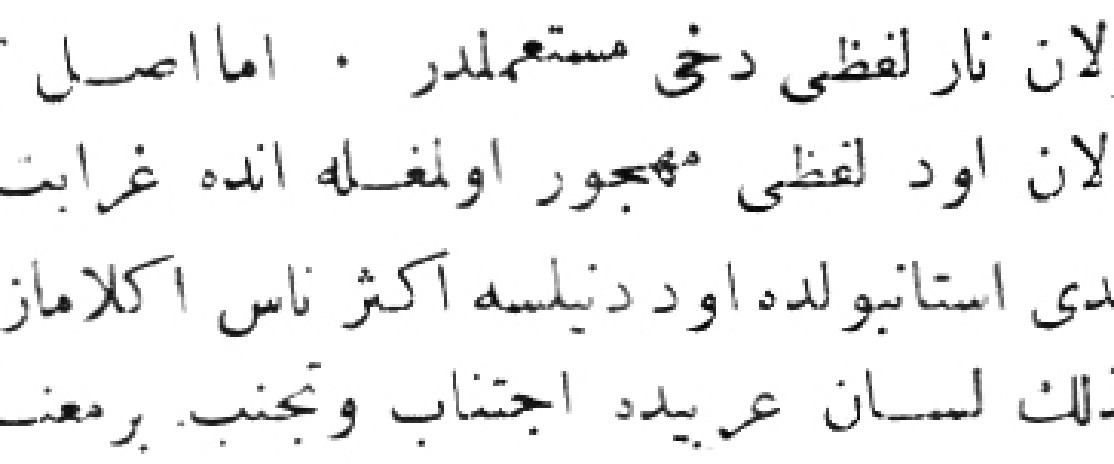 لان نار لفظی دخی مستعملدر ٠ اما اصل
لان اود لفظی مهجور اولمغله انده غرابت
دی استانبولده اود دنیلسه اکثر ناس اکلاماز
ذلك لسان عربیده اجتناب وتجنب بر معنـ